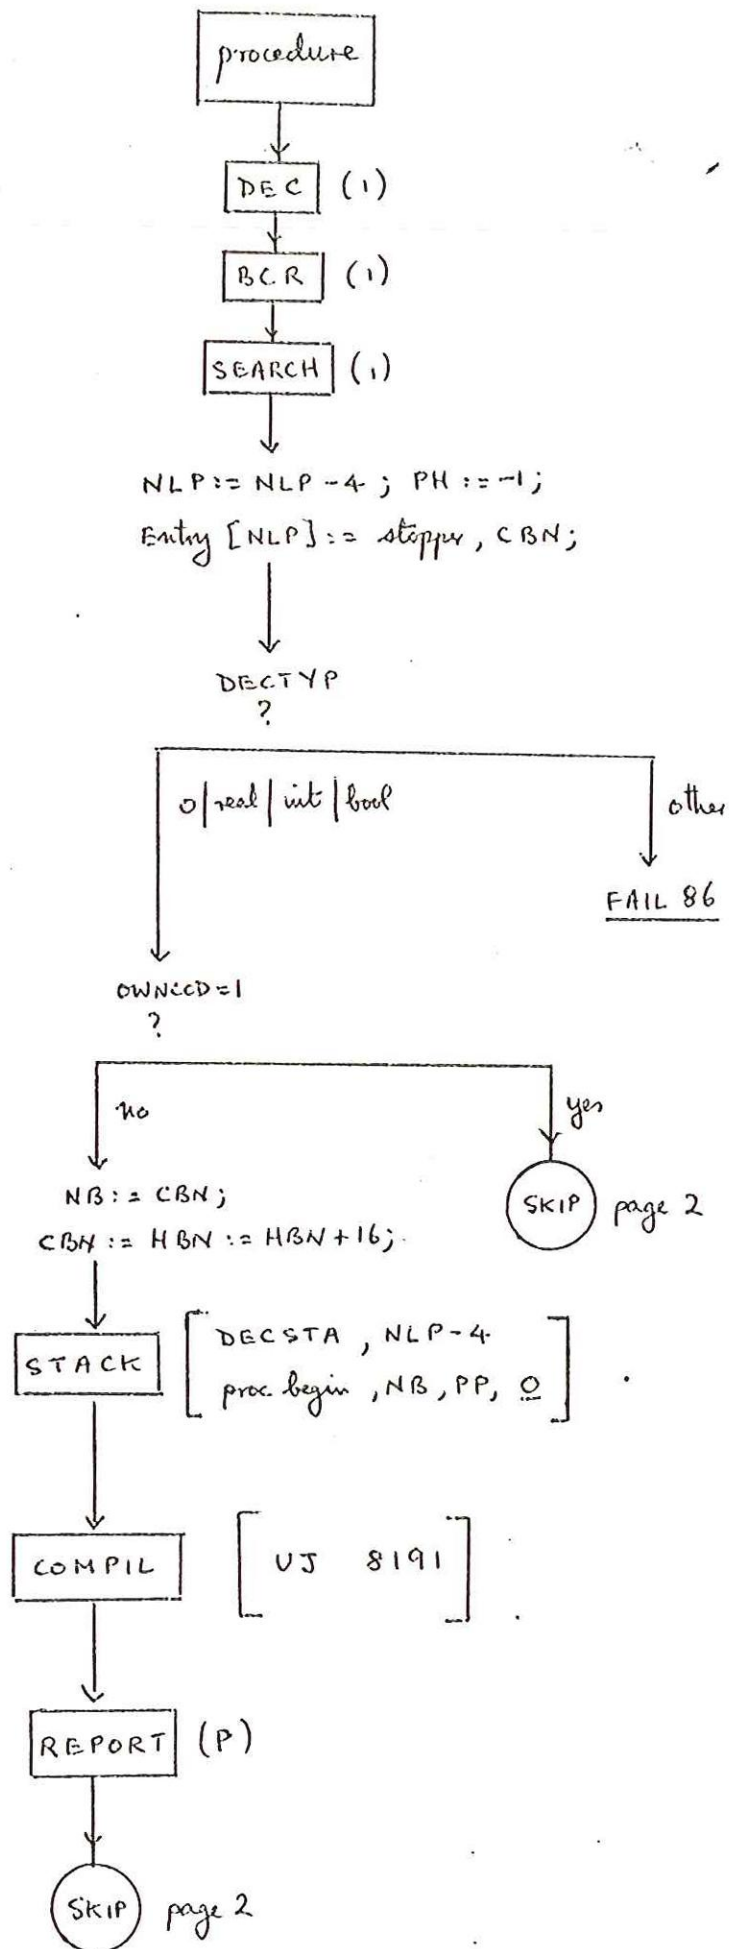 procedure
DEC (1)
BCR (1)
SEARCH (1)
NLP := NLP - 4 ; PH := -1 ;
Entry [NLP] := stopper , CBN ;
DECTYP
?
0 | real | int | bool
other
FAIL 86
OWNCOD = 1
?
no
yes
NB := CBN ;
SKIP page 2
CBN := HBN := HBN + 16 ;
STACK [ DECSTA , NLP - 4
proc begin , NB , PP , 0 ] .
COMPIL [ UJ 8191 ] .
REPORT (P)
SKIP page 2